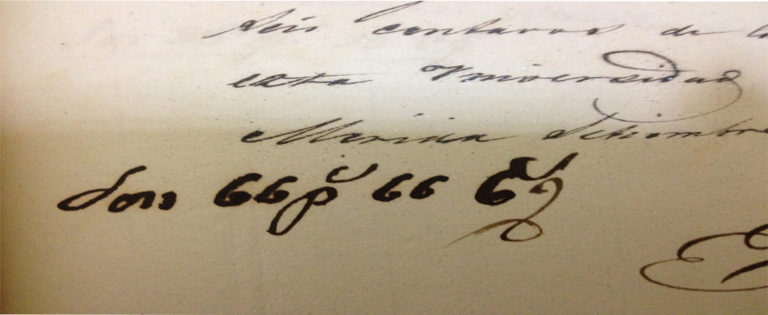 Seis centavos de
esta Universidad
Merida Setiembre
Son 66 p.s 66 c.s